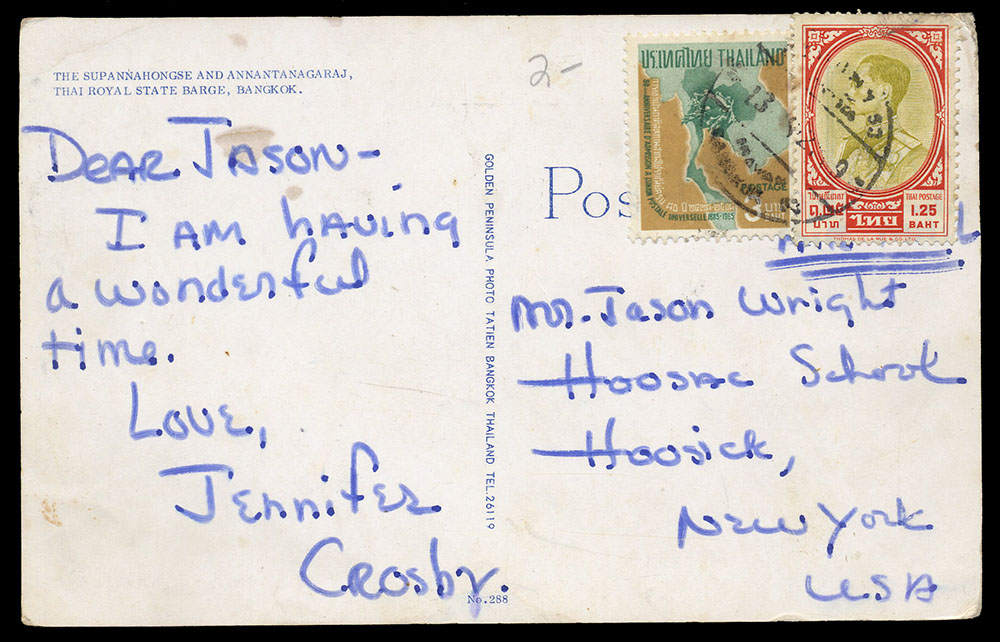 THE SUPANNAHONGSE AND ANNANTANAGARAJ,
THAI ROYAL STATE BARGE, BANGKOK.
Dear Jason-
I am having
a wonderful
time.
Love,
Jennifer
Crosby.
No. 288
GOLDEN PENINSULA PHOTO TATIEN BANGKOK THAILAND TEL. 26119
2-
Pos
ประเทศไทย THAILAND
POSTAGE
POSTALE UNIVERSELLE 1885-1965
3
THAI POSTAGE
๑.๒๕
บาท
ไทย
1.25
BAHT
THOMAS DE LA RUE & CO. LTD.
Mr. Jason Wright
Hoosac School
Hoosick,
New York
USA